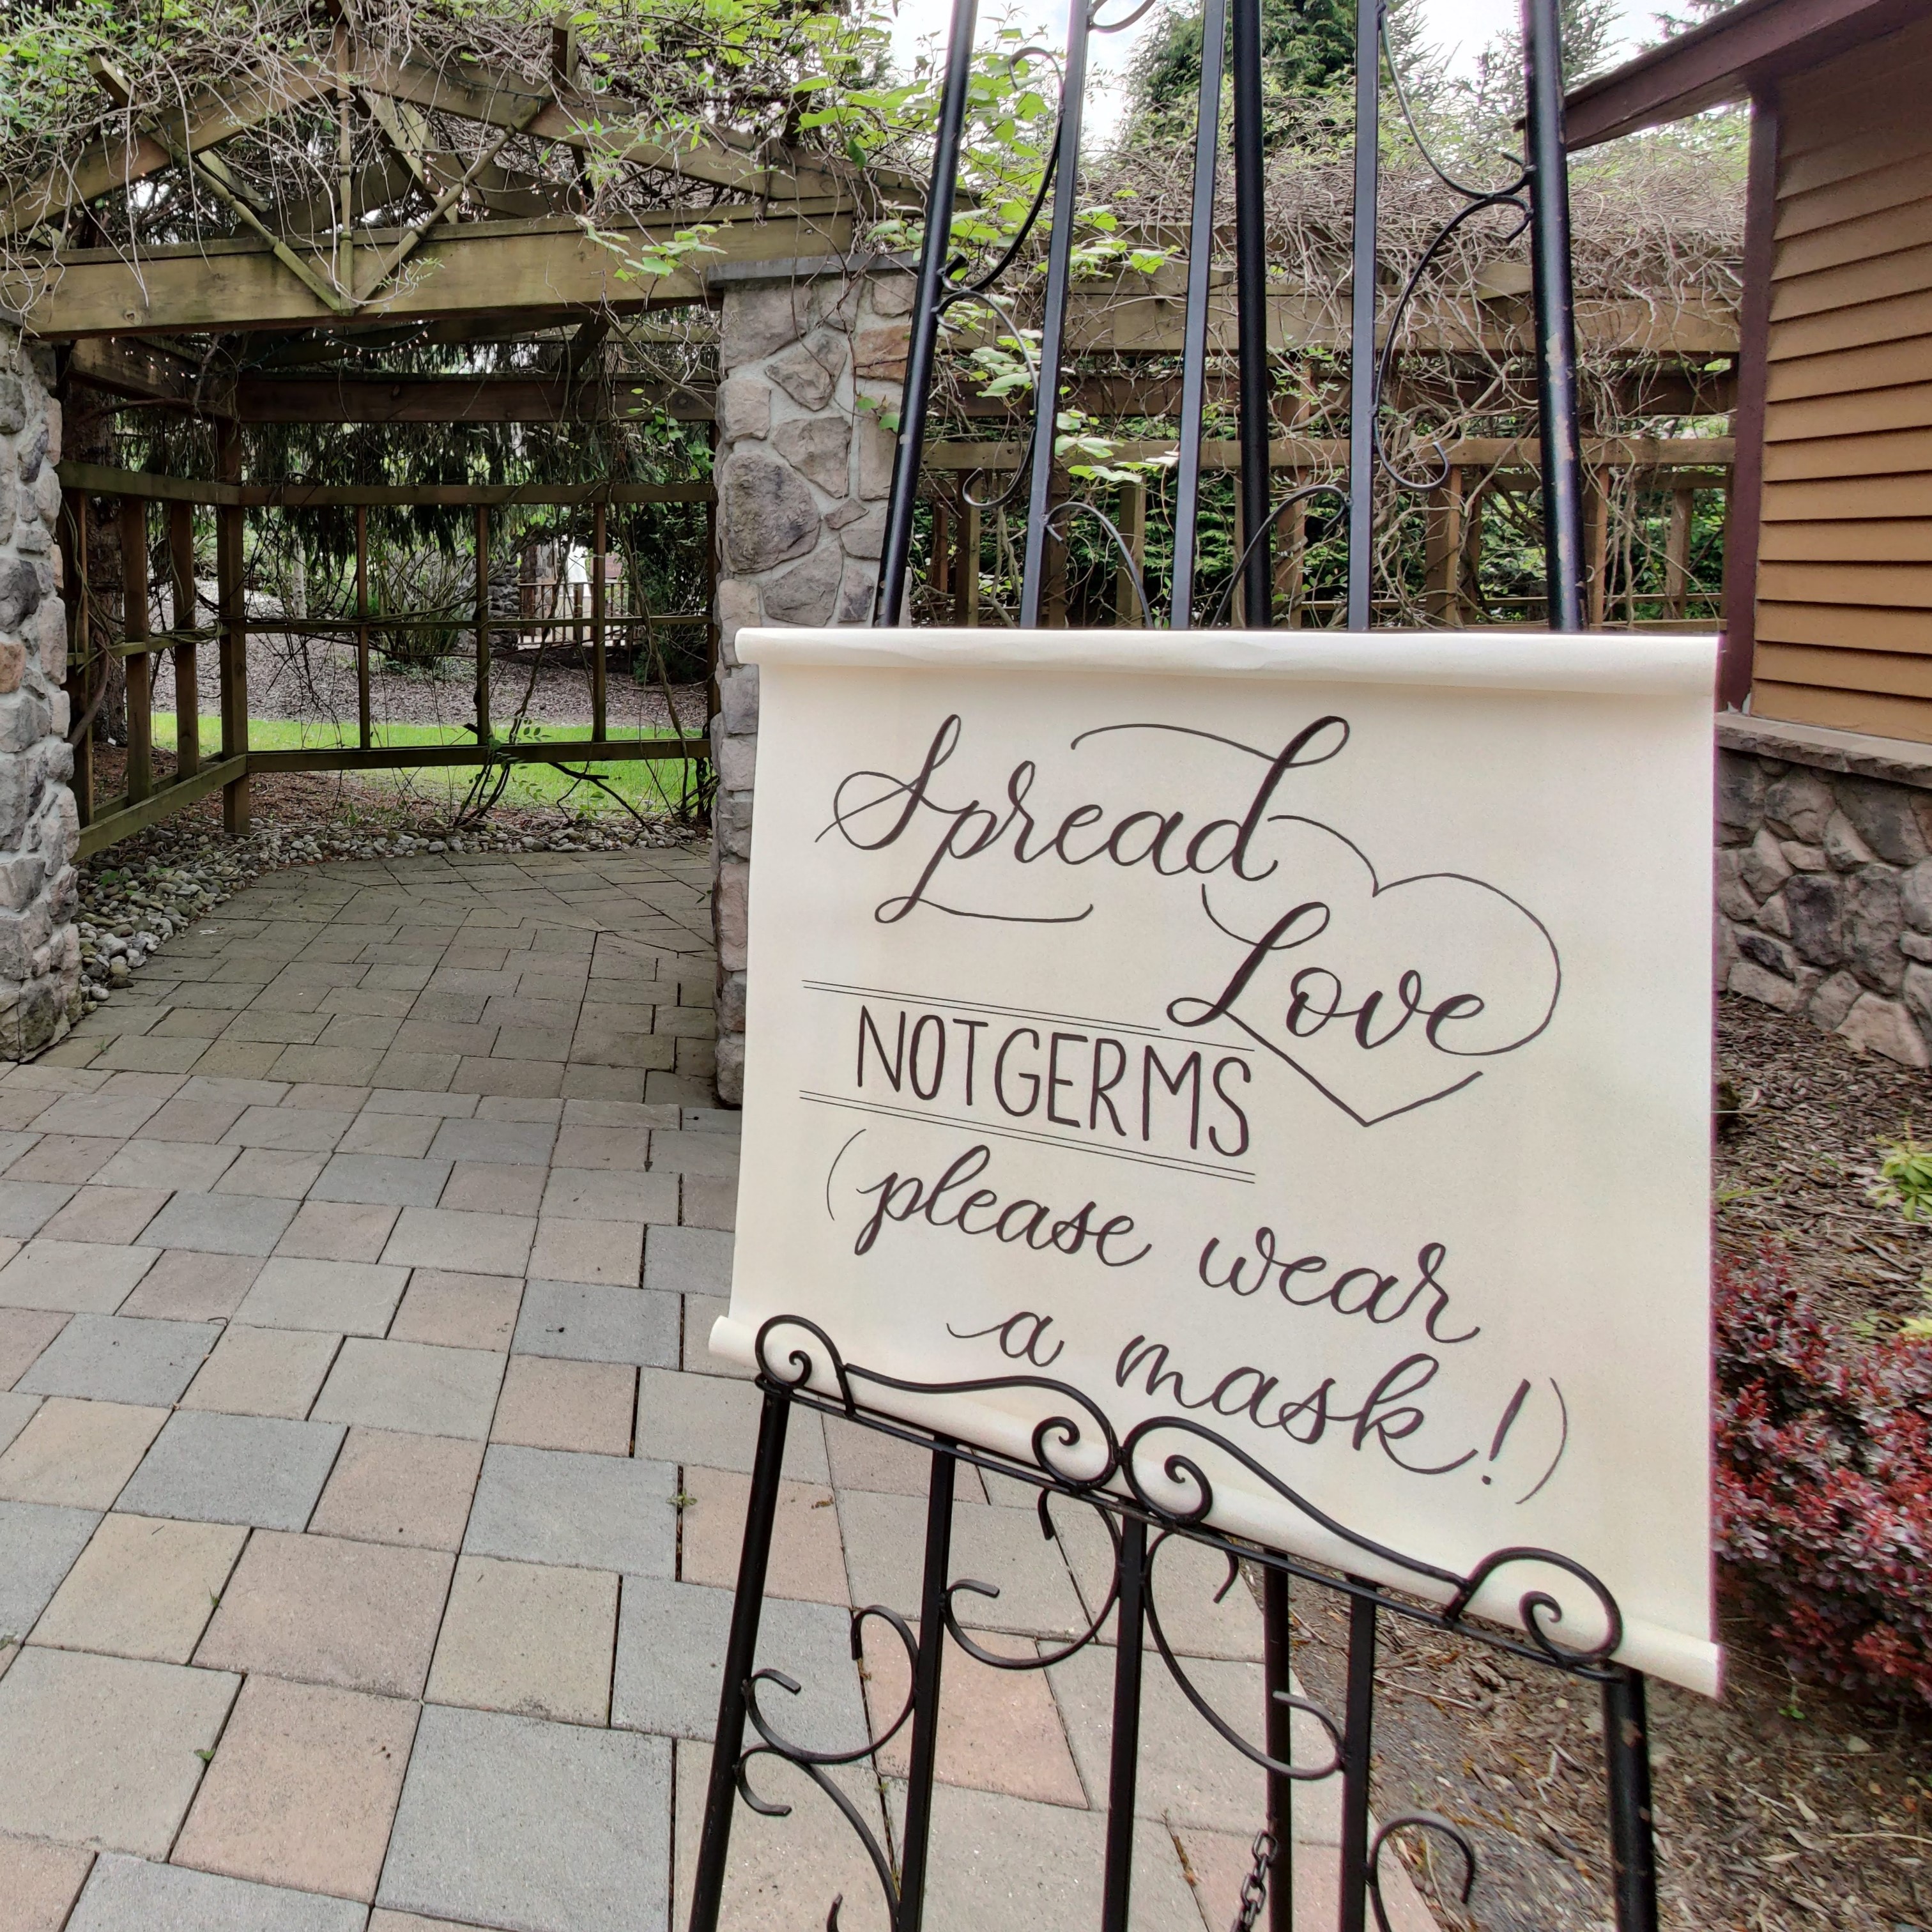 Spread
Love
NOT GERMS
(please wear
a mask!)